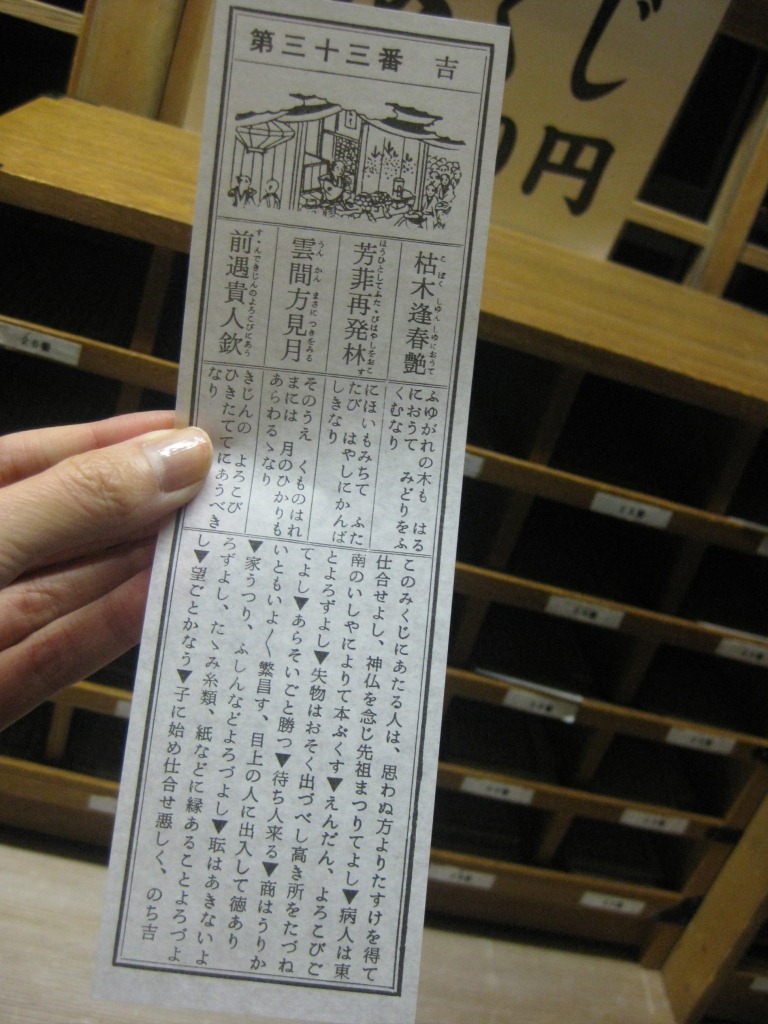 第三十三番 吉
枯木逢春艶
こ ぼく しゆん しゆにおうて
芳菲再発林
雲間方見月
うん かん まさに つきをみる
前遇貴人欽
ふゆがれの木も はる
におうて みどりをふ
くむなり
にほいもみちて ふた
たび はやしにかんば
しきなり
そのうえ くものはれ
まには 月のひかりも
あらわるゝなり
きじんの よろこび
ひきたてにあうべき
なり
このみくじにあたる人は、思わぬ方よりたすけを得て
仕合せよし、神仏を念じ先祖まつりてよし▼病人は東
南のいしやによりて本ぷくす▼えんだん、よろこびご
とよろずよし▼失物はおそく出づべし高き所をたづね
てよし▼あらそいごと勝つ▼待ち人来る▼商はうりか
いともいよ〱繁昌す、目上の人に出入して徳あり
▼家うつり、ふしんなどよろづよし▼耘はあきないよ
ろずよし、たゝみ糸類、紙などに縁あることよろづよ
し▼望ごとかなう▼子に始め仕合せ悪しく、のち吉
くじ
0円